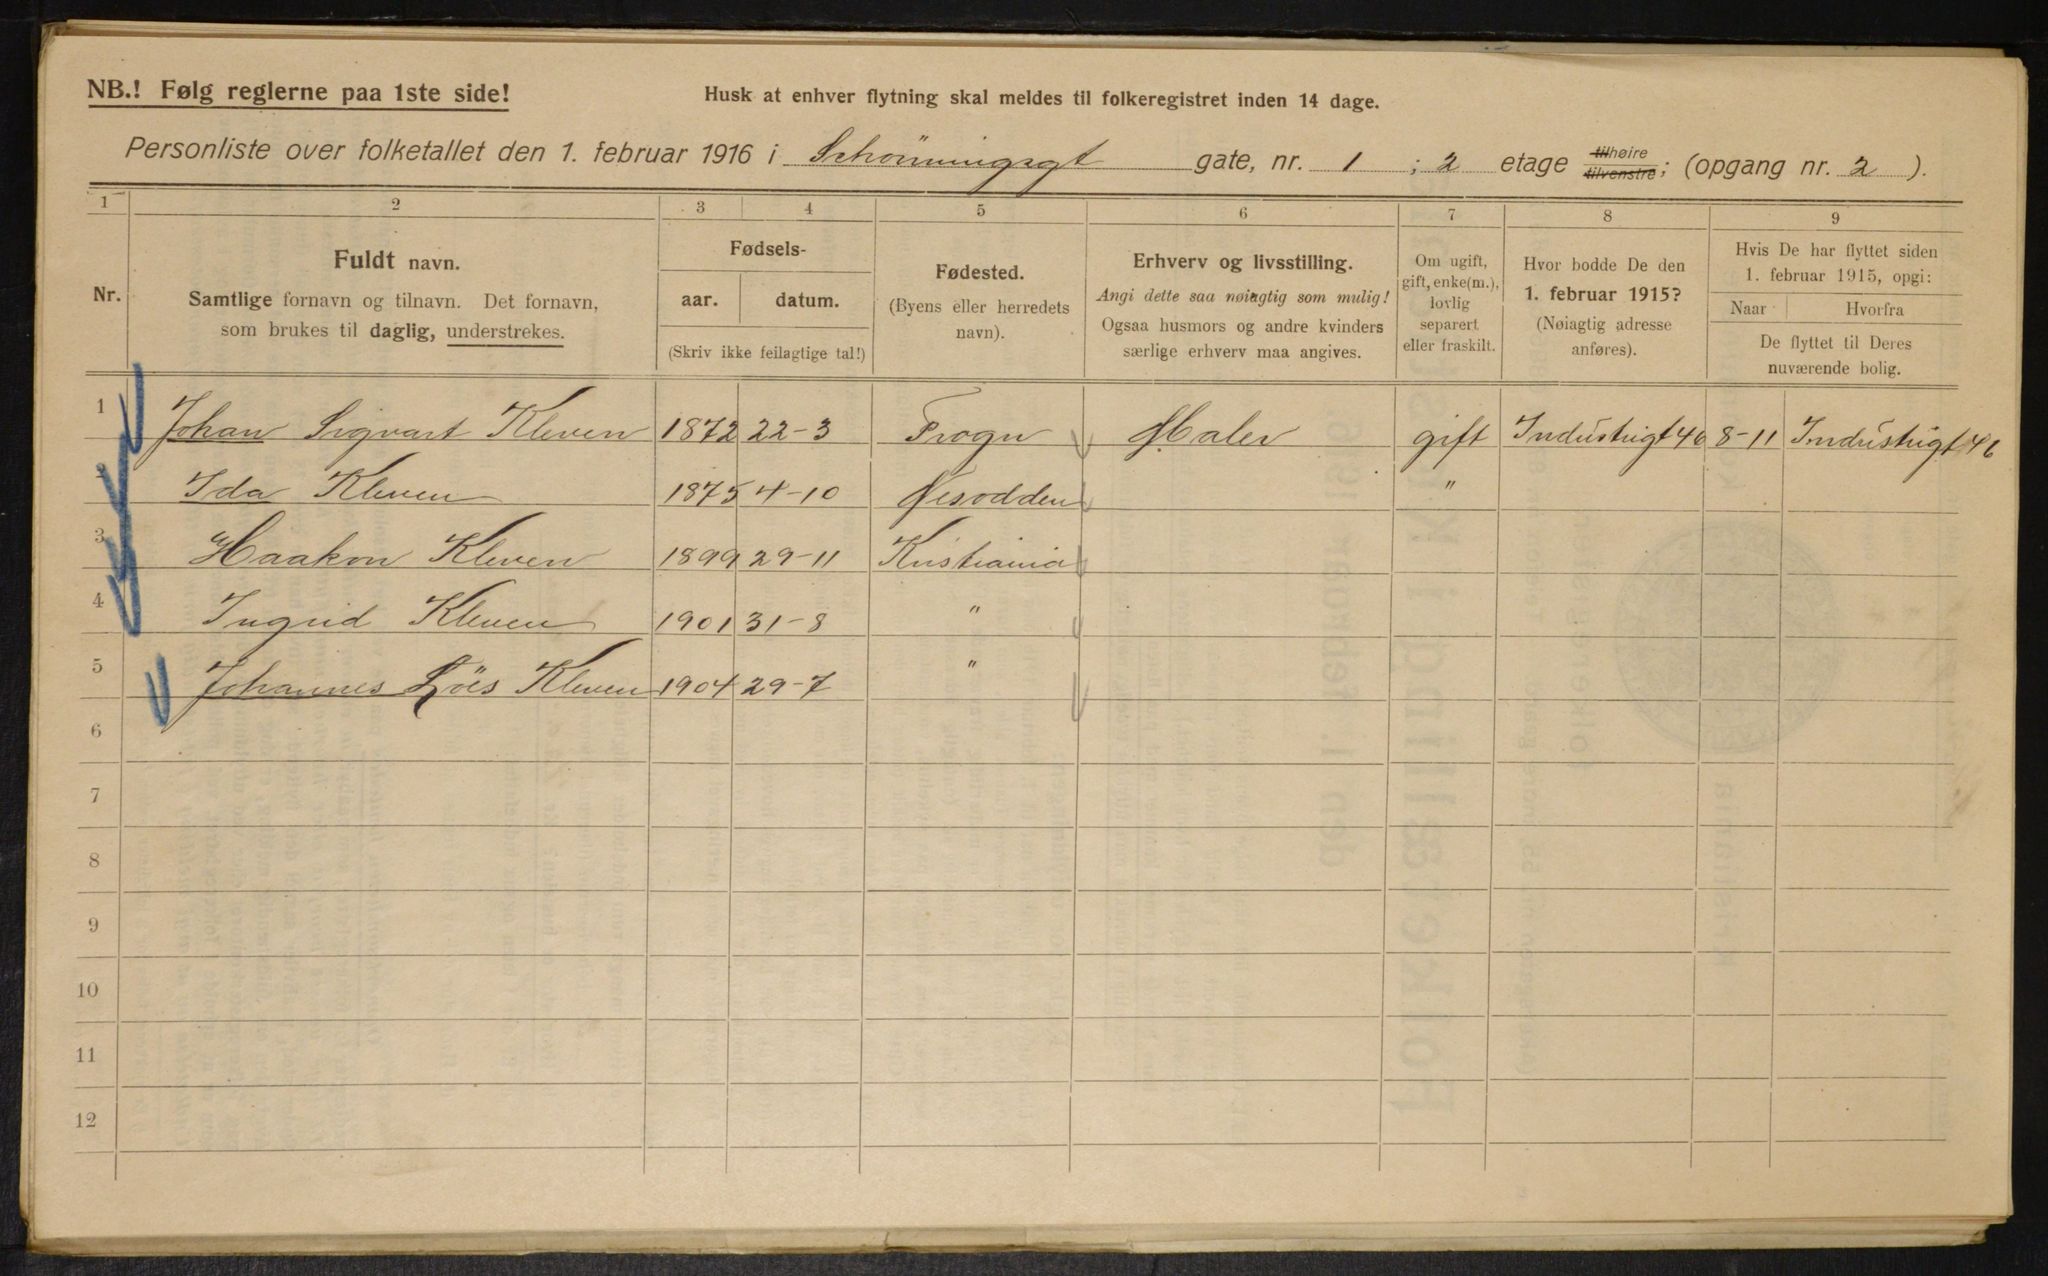 NB.! Følg reglerne paa 1ste side!
Husk at enhver flytning skal meldes til folkeregistret inden 14 dage.
Personliste over folketallet den 1. februar 1916 i Schønningsgt gate, nr. 1 ; 2 etage tilhøire tilvenstre ; (opgang nr. 2 ).
1 2 3 4 5 6 7 8 9
Nr.
Fuldt navn.
Samtlige fornavn og tilnavn. Det fornavn,
som brukes til daglig, understrekes.
Fødsels-
aar. datum.
(Skriv ikke feilagtige tal!)
Fødested.
(Byens eller herredets
navn).
Erhverv og livsstilling.
Angi dette saa nøiagtig som mulig!
Ogsaa husmors og andre kvinders
særlige erhverv maa angives.
Om ugift,
gift, enke(m.),
lovlig
separert
eller fraskilt.
Hvor bodde De den
1. februar 1915?
(Nøiagtig adresse
anføres).
Hvis De har flyttet siden
1. februar 1915, opgi:
Naar Hvorfra
De flyttet til Deres
nuværende bolig.
1 Johan Sigvart Kleven 1872 22-3 Frogn Maler gift Industrigt 46 8-11 Industrigt 46
Ida Kleven 1875 4-10 Nesodden "
3 Haakon Kleven 1899 29-11 Kristiania
4 Ingrid Kleven 1901 31-8 "
5 Johannes Löes Kleven 1904 29-7 "
6
7
8
9
10
11
12